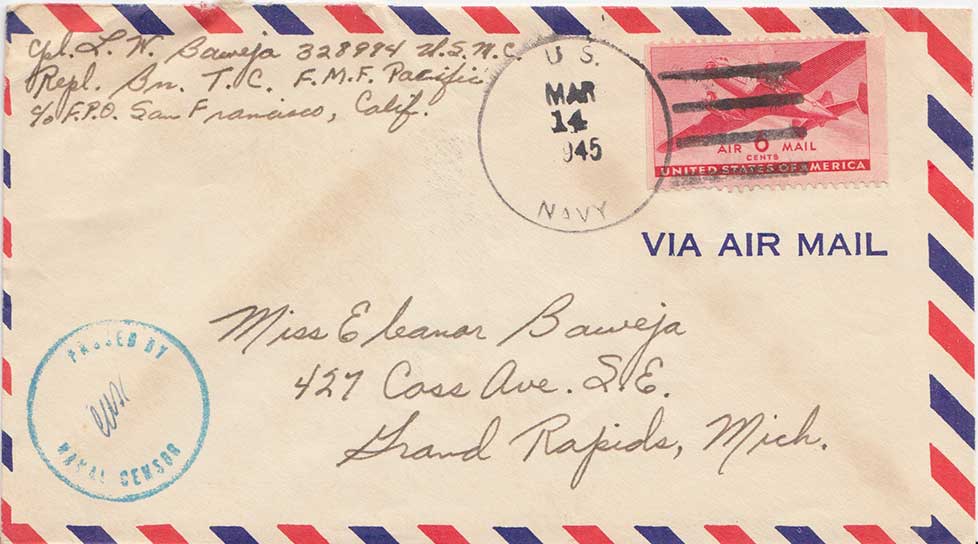 Cpl. L. W. Baweja 328984 U.S.M.C.
Repl. Bn. T. C. F.M.F. Pacific
c/o F.P.O. San Francisco, Calif.
U.S.
MAR
14
1945
NAVY
AIR 6 MAIL
CENTS
UNITED STATES OF AMERICA
VIA AIR MAIL
Miss Eleanor Baweja
427 Cass Ave. S.E.
Grand Rapids, Mich.
PASSED BY
NAVAL CENSOR